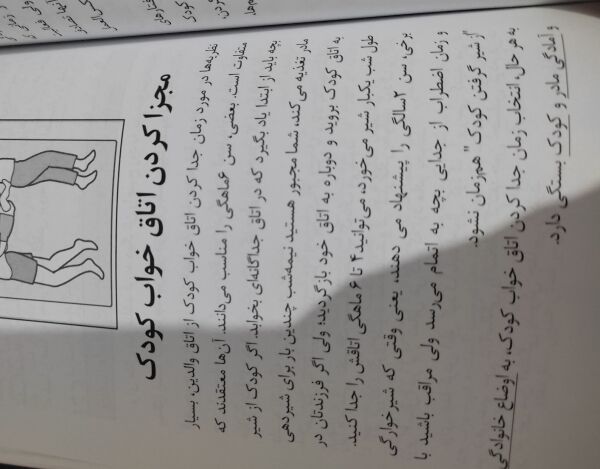 مجزا کردن اتاق خواب کودک
نظریه‌ها در مورد زمان جدا کردن اتاق خواب کودک از اتاق والدین، بسیار
متفاوت است. بعضی، سن ۶ماهگی را مناسب می‌دانند. آن‌ها معتقدند که
بچه باید از ابتدا یاد بگیرد که در اتاق جداگانه‌ای بخوابد. اگر کودک از شیر
مادر تغذیه می‌کند، شما مجبور هستید نیمه‌شب چندین بار برای شیردهی
به اتاق کودک بروید و دوباره به اتاق خود بازگردید؛ ولی اگر فرزندتان در
طول شب یکبار شیر می‌خورد، می‌توانید ۴ تا ۶ ماهگی اتاقش را جدا کنید.
برخی، سن ۲سالگی را پیشنهاد می دهند، یعنی وقتی که شیرخوارگی
و زمان اضطراب از جدایی بچه به اتمام می‌رسد ولی مراقب باشید با
"از شیر گرفتن کودک" هم‌زمان نشود.
به هر حال، انتخاب زمان جدا کردن اتاق خواب کودک، به اوضاع خانوادگی
و آمادگی مادر و کودک بستگی دارد.